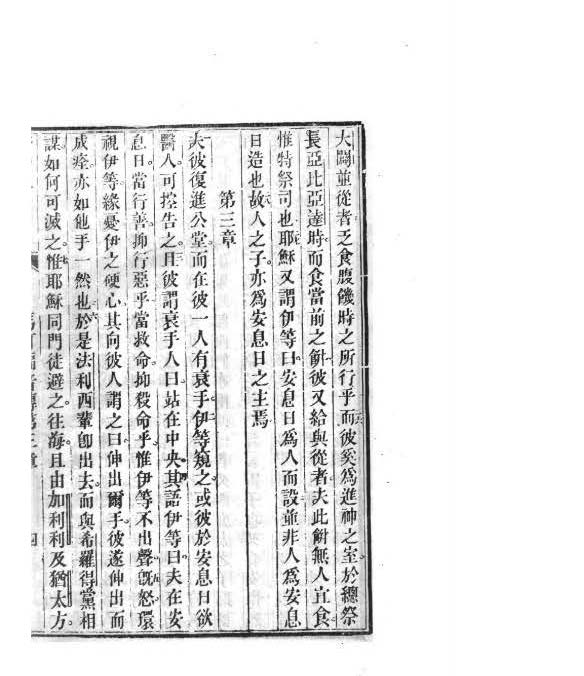 大闢並從者乏食腹饑時之所行乎而彼奚爲進神之室於總祭
長亞比亞達時而食當前之餅彼又給與從者夫此餅無人宜食
惟特祭司也耶穌又謂伊等曰安息日爲人而設並非人爲安息
日造也故人之子亦爲安息日之主焉
第三章
夫彼復進公堂而在彼一人有衰手伊等窺之或彼於安息日欲
醫人可控告之且彼謂衰手人曰站在中央其語伊等曰夫在安
息日當行善抑行惡乎當救命抑殺命乎惟伊等不出聲旣怒環
視伊等緣憂伊之硬心其向彼人謂之曰伸出爾手彼遂伸出而
成痊亦如他手一然也於是法利西輩卽出去而與希羅得黨相
謀如何可滅之惟耶穌同門徒避之往海且由加利利及猶太方